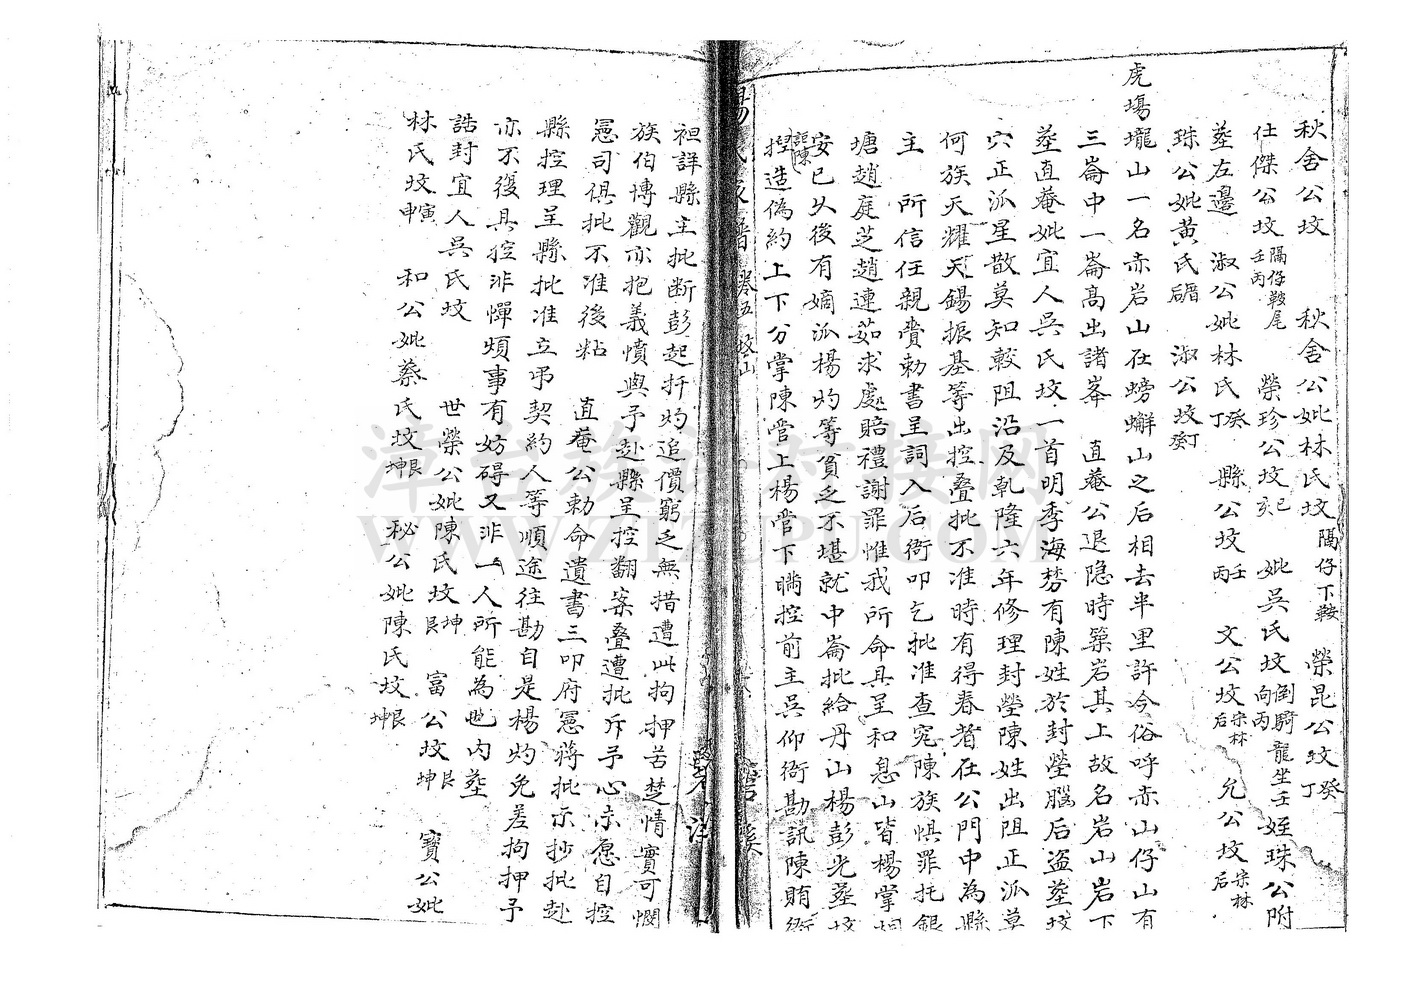 秋舍公坟　秋舍公妣林氏坟隔仔下鞍　榮昆公坟癸丁
仕傑公坟隔仔鞍尾壬丙　榮珍公坟　妣吳氏坟倒騎龍坐壬向丙　姪珠公附
塟左邊　淑公妣林氏癸丁　縣公坟壬丙　文公坟宋林后　允公坟宋林后
珠公妣黃氏　淑公坟癸丁
虎塲壠山一名赤岩山在螃蠏山之后相去半里許今俗呼赤山仔山有
三崙中一崙髙出諸峯　直菴公退隐時築岩其上故名岩山岩下
塟直菴妣宜人吳氏坟一首明季海棼有陳姓於封塋腦后盗塟坟
穴正派星散莫知較阻沿及乹隆六年修理封塋陳姓出阻正派莫
何族天耀天錫振基等出控叠批不准時有得春者在公門中為縣
主　所信任親賫勅書呈詞入后衙叩乞批准查宄陳族惧罪托銀
塘趙庭芝趙連茹求處賠禮謝罪惟我所命具呈和息山皆楊掌
安已乆後有嫡派楊灼等貧乏不堪就中崙批給丹山楊彭光塟坟
詎陳捏造偽約上下分掌陳管上楊管下瞒控前主吳仰衙勘訊陳賄衙
楊氏家譜　卷五　坟山
袒詳縣主批断彭起扦灼追價窮乏無措遭此拘押苦楚情實可憫
族伯博觀亦抱義憤與予赴縣呈控翻案叠遭批斥予心未愿自控
憲司俱批不准後粘　直菴公勅命遺書三叩府憲蒋批示抄批赴
縣控理呈縣批准立吊契約人等順途往勘自是楊灼免差拘押予
亦不復具控非憚煩事有妨碍又非一人所能為也内塟
誥封宜人吳氏坟　世榮公妣陳氏坟坤艮　富公坟艮坤　寶公妣
林氏坟寅申　和公妣蔡氏坟艮坤　秘公妣陳氏坟艮坤
漳台族譜对接网
WWW.ZTZUPU.COM